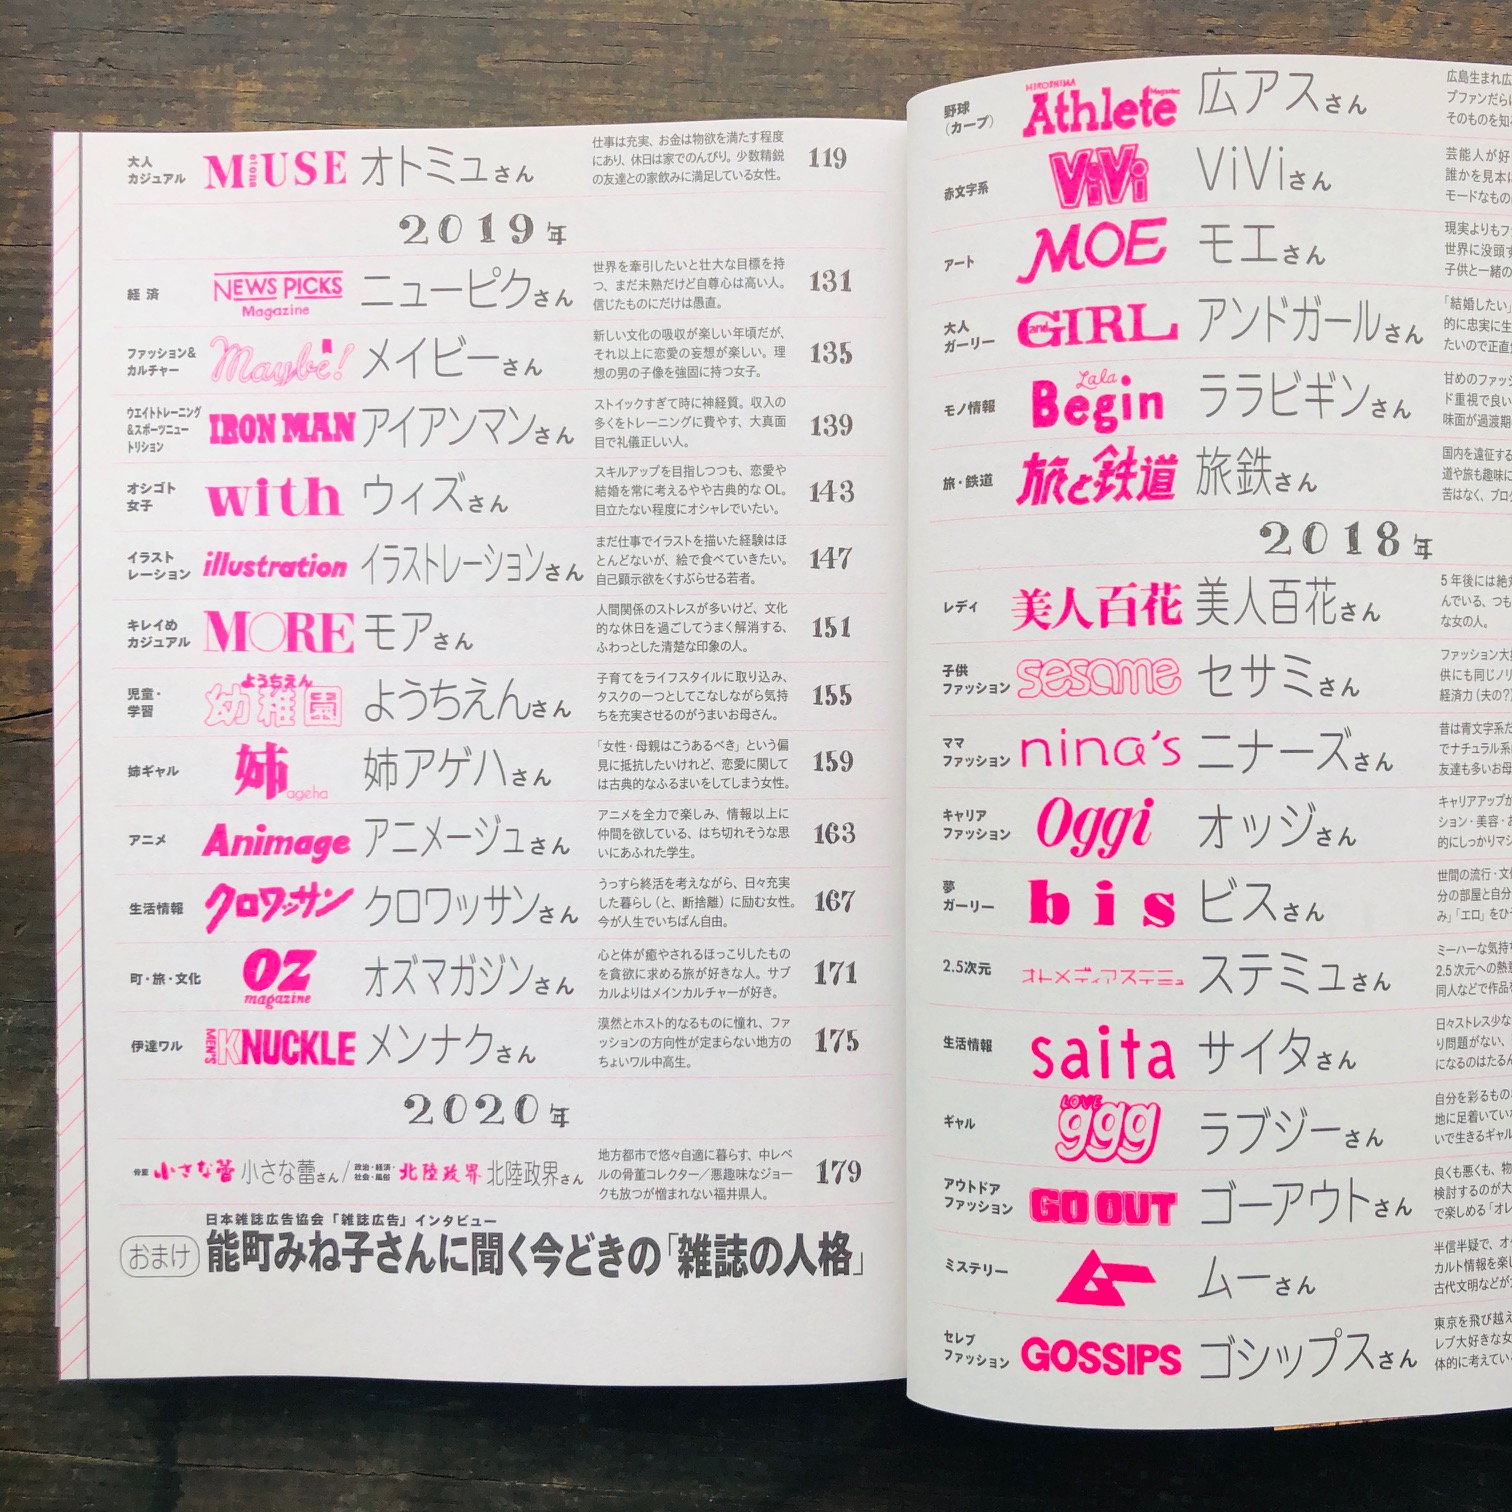 野球
(カープ)
HIROSHIMA
Athlete Magazine
広アスさん
広島生まれ広
プファンだらけ
そのものを知
赤文字系
ViVi
ViViさん
芸能人が好
誰かを見本に
モードなもの
アート
MOE
モエさん
現実よりもフ
世界に没頭す
子供と一緒の
大人
ガーリー
and GIRL
アンドガールさん
「結婚したい」
的に忠実に生
たいので正直
モノ情報
LaLa
Begin
ララビギンさん
甘めのファッシ
ド重視で良い
味面が過渡期
旅・鉄道
旅と鉄道
旅鉄さん
国内を遠征する
道や旅も趣味に
苦はなく、ブログ
2018年
レディ
美人百花
美人百花さん
5年後には絶対
んでいる、つも
な女の人。
子供
ファッション
sesame
セサミさん
ファッション大
供にも同じノリ
経済力(夫の?)
ママ
ファッション
nina's
ニナーズさん
昔は青文字系だ
でナチュラル系
友達も多いお母
キャリア
ファッション
Oggi
オッジさん
キャリアアップが
ション・美容・お
的にしっかりマシ
夢
ガーリー
bis
ビスさん
世間の流行・文化
分の部屋と自分
み」「エロ」をひ
2.5次元
オトメディアステミュ
ステミュさん
ミーハーな気持ち
2.5次元への熱
同人などで作品を
生活情報
saita
サイタさん
日々ストレス少な
り問題がない、
になるのはたるん
ギャル
LOVE
ggg
ラブジーさん
自分を彩るもの
地に足着いてい
いで生きるギャル
アウトドア
ファッション
GO OUT
ゴーアウトさん
良くも悪くも、物
検討するのが大
で楽しめる「オレ
ミステリー
ムー
ムーさん
半信半疑で、オ
カルト情報を楽し
古代文明などが
セレブ
ファッション
GOSSIPS
ゴシップスさん
東京を飛び越え
レブ大好きな女
体的に考えてい
大人
カジュアル
otona MUSE
オトミュさん
仕事は充実、お金は物欲を満たす程度
にあり、休日は家でのんびり。少数精鋭
の友達との家飲みに満足している女性。
119
2019年
経済
NEWS PICKS
Magazine
ニューピクさん
世界を牽引したいと壮大な目標を持
つ、まだ未熟だけど自尊心は高い人。
信じたものにだけは愚直。
131
ファッション&
カルチャー
Maybe!
メイビーさん
新しい文化の吸収が楽しい年頃だが、
それ以上に恋愛の妄想が楽しい。理
想の男の子像を強固に持つ女子。
135
ウエイトトレーニング
&スポーツニュー
トリション
IRON MAN
アイアンマンさん
ストイックすぎて時に神経質。収入の
多くをトレーニングに費やす、大真面
目で礼儀正しい人。
139
オシゴト
女子
with
ウィズさん
スキルアップを目指しつつも、恋愛や
結婚を常に考えるやや古典的なOL。
目立たない程度にオシャレでいたい。
143
イラスト
レーション
illustration
イラストレーションさん
まだ仕事でイラストを描いた経験はほ
とんどないが、絵で食べていきたい。
自己顕示欲をくすぶらせる若者。
147
キレイめ
カジュアル
MORE
モアさん
人間関係のストレスが多いけど、文化
的な休日を過ごしてうまく解消する、
ふわっとした清楚な印象の人。
151
児童・
学習
ようちえん
幼稚園
ようちえんさん
子育てをライフスタイルに取り込み、
タスクの一つとしてこなしながら気持
ちを充実させるのがうまいお母さん。
155
姉ギャル
姉ageha
姉アゲハさん
「女性・母親はこうあるべき」という偏
見に抵抗したいけれど、恋愛に関して
は古典的なふるまいをしてしまう女性。
159
アニメ
Animage
アニメージュさん
アニメを全力で楽しみ、情報以上に
仲間を欲している、はち切れそうな思
いにあふれた学生。
163
生活情報
クロワッサン
クロワッサンさん
うっすら終活を考えながら、日々充実
した暮らし(と、断捨離)に励む女性。
今が人生でいちばん自由。
167
町・旅・文化
OZ
magazine
オズマガジンさん
心と体が癒やされるほっこりしたもの
を貪欲に求める旅が好きな人。サブ
カルよりはメインカルチャーが好き。
171
伊達ワル
MEN'S KNUCKLE
メンナクさん
漠然とホスト的なるものに憧れ、ファ
ッションの方向性が定まらない地方の
ちょいワル中高生。
175
2020年
骨董
小さな蕾
小さな蕾さん/
政治・経済・
社会・風俗
北陸政界
北陸政界さん
地方都市で悠々自適に暮らす、中レベ
ルの骨董コレクター/悪趣味なジョー
クも放つが憎まれない福井県人。
179
日本雑誌広告協会「雑誌広告」インタビュー
おまけ
能町みね子さんに聞く今どきの「雑誌の人格」